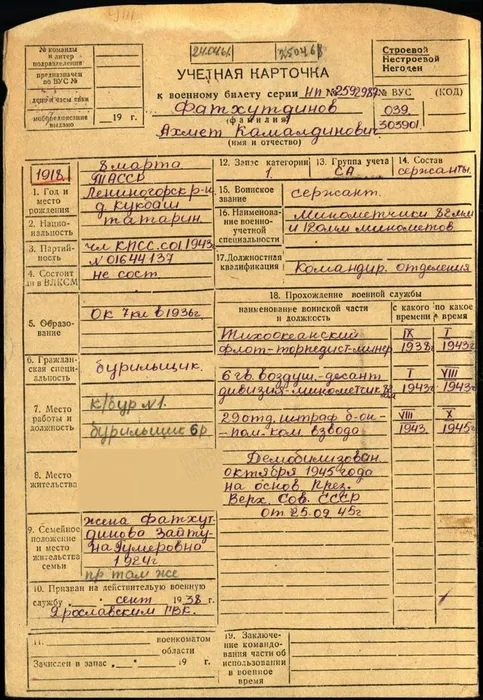 № команды
и литер
подразделения
предназначен
по ВУС №
дан и чем явки
моб. предписание
выдано
« » 19 г.
24.04.66.
Строевой
Нестроевой
Негоден
УЧЕТНАЯ КАРТОЧКА
к военному билету серии НП № 2592987
№ ВУС (КОД)
039
303901
Фатхутдинов
(фамилия)
Ахмет Камалдинович
(имя и отчество)
1918
1. Год и место рождения
8 марта
ТАССР
Лениногорск р-н
д Кукоаш
2. Национальность
татарин.
3. Партийность
чл КПСС.со 1943
№ 01644137
4. Состоит ли в ВЛКСМ
не сост.
5. Образование
ок 7 кл в 1936г.
6. Гражданская специальность
бурильщик.
7. Место работы и должность
к/бур №1.
бурильщик 6р
8. Место жительства
9. Семейное положение и место жительства семьи
жена Фатхутдинова Зайтуна
1924г
пр там же
10. Призван на действительную военную
службу « » сент 1938 г.
Ярославским ГВК.
11. военкоматом
области
Зачислен в запас « » 19 г.
12. Запас категории
1.
13. Группа учета
СА
14. Состав
сержанты.
15. Воинское звание
сержант.
16. Наименование военно-учетной специальности
Минометчики 82мм
и 120мм минометов
17. Должностная квалификация
Командир. отделения
18. Прохождение военной службы
наименование воинской части и должность
с какого времени
по какое время
Тихоокеанский IX I
флот-торпедист-минер 1938г 1943г
6 гв. воздуш.-десант I VIII
дивизия-минометчик 1943г 1943г
29 отд. штраф б-он- VIII X
-пом. ком взвода 1943 1945г
Демобилизован
октября 1945 года
на основ През.
Верх. Сов. СССР
от 25.09 45г
19. Заключение командования об использовании в военное время